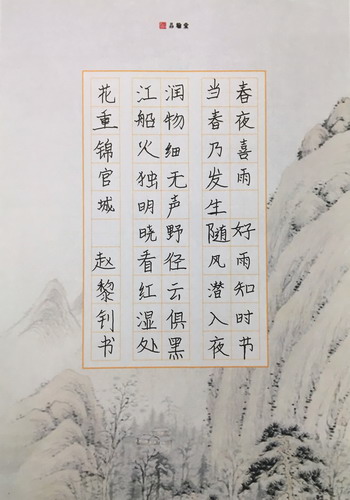 品翰堂
春夜喜雨 好雨知时节
当春乃发生随风潜入夜
润物细无声野径云俱黑
江船火独明晓看红湿处
花重锦官城 赵黎钊书